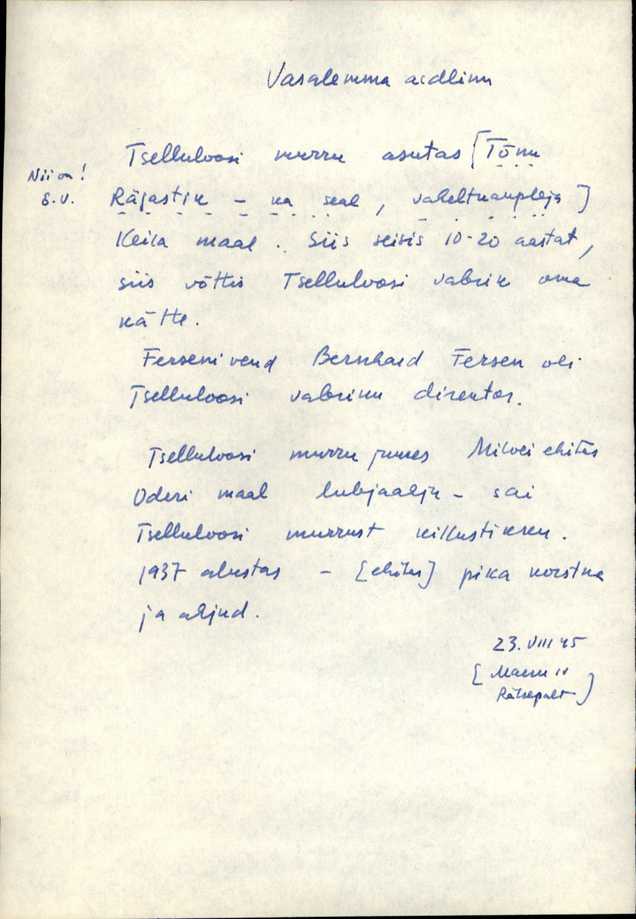 Vasalemma
Tselluloosi murru asutas [Tõnu
Nii on!
S.V.
Räjastik - ka seal, vaheltkaupleja]
Keila maal. Siis seisis 10-20 aastat,
siis võttis Tselluloosi vabrik oma
kätte.
Ferseni vend Bernhard Fersen oli
Tselluloosi vabriku direktor.
Tselluloosi murru juures ehitas
Oderi maal lubjaahju - sai
Tselluloosi murrust killustikku.
1937 alustas - [ehitas] pika korstna
ja ahjud.
23. VIII 45
[
Rätsepalt]